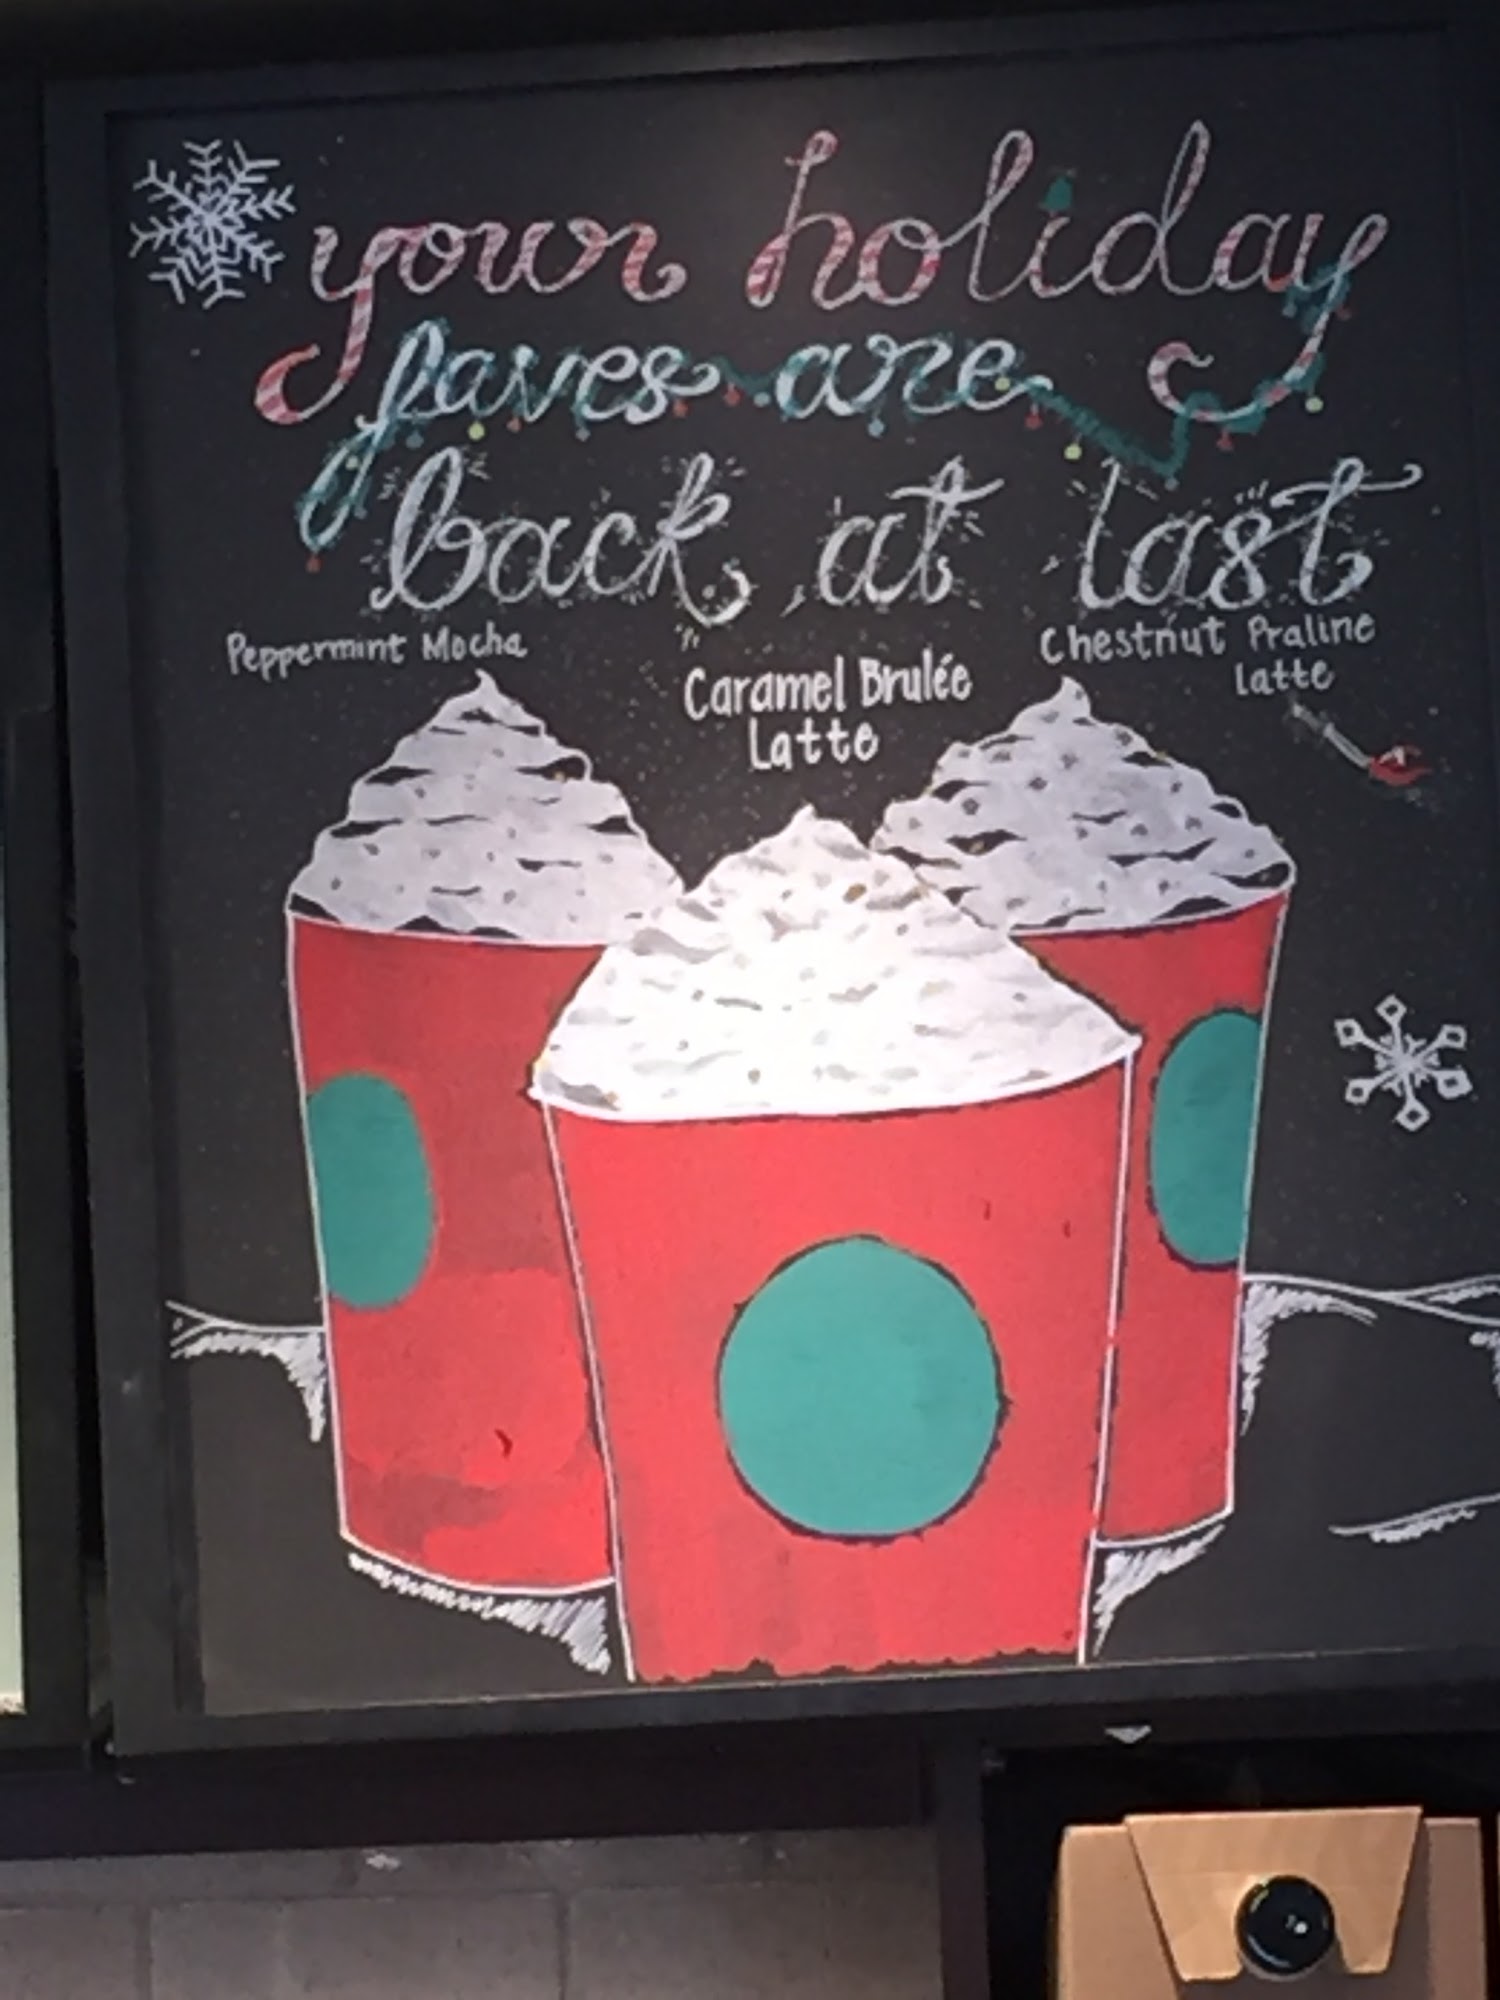 your holiday
faves are
back at last
Peppermint Mocha
Caramel Brulée
Latte
Chestnut Praline
Latte